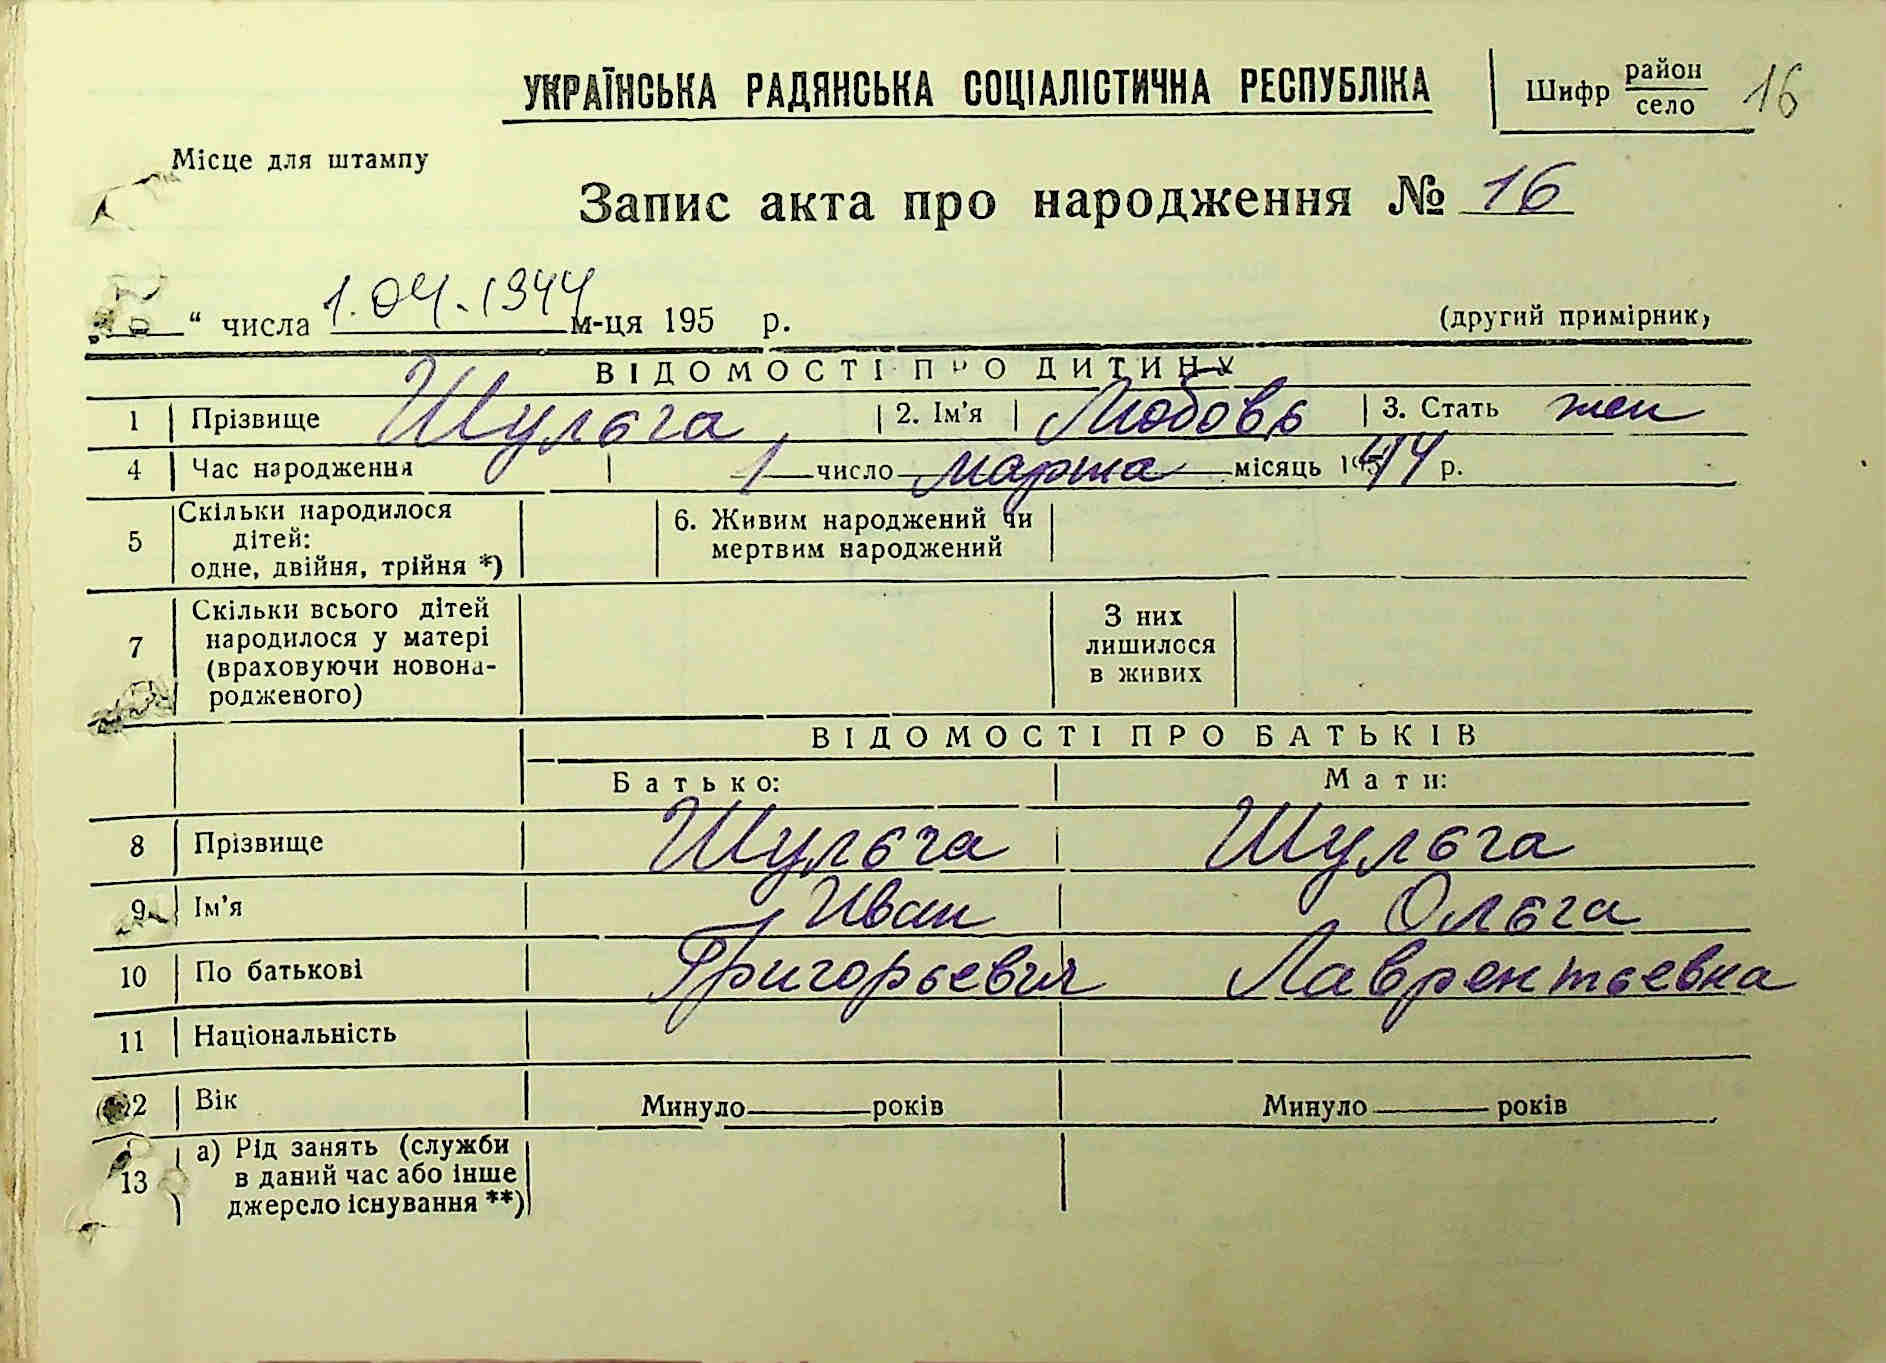 УКРАЇНСЬКА РАДЯНСЬКА СОЦІАЛІСТИЧНА РЕСПУБЛІКА
Шифр район село 16
Місце для штампу
Запис акта про народження № 16
“ числа 1.04.1944 м-ця 195 р.
(другий примірник)
ВІДОМОСТІ ПРО ДИТИНУ
1 Прізвище Шульга 2. Ім’я Любовь 3. Стать жен
4 Час народження 1 число марта місяць 1944 р.
5 Скільки народилося дітей: одне, двійня, трійня *)
6. Живим народжений чи мертвим народжений
7 Скільки всього дітей народилося у матері (враховуючи новонародженого)
З них лишилося в живих
ВІДОМОСТІ ПРО БАТЬКІВ
Батько: Мати:
8 Прізвище Шульга Шульга
9 Ім’я Иван Ольга
10 По батькові Григорьевич Лаврентьевна
11 Національність
12 Вік Минуло років Минуло років
13 а) Рід занять (служби в даний час або інше джерело існування **)